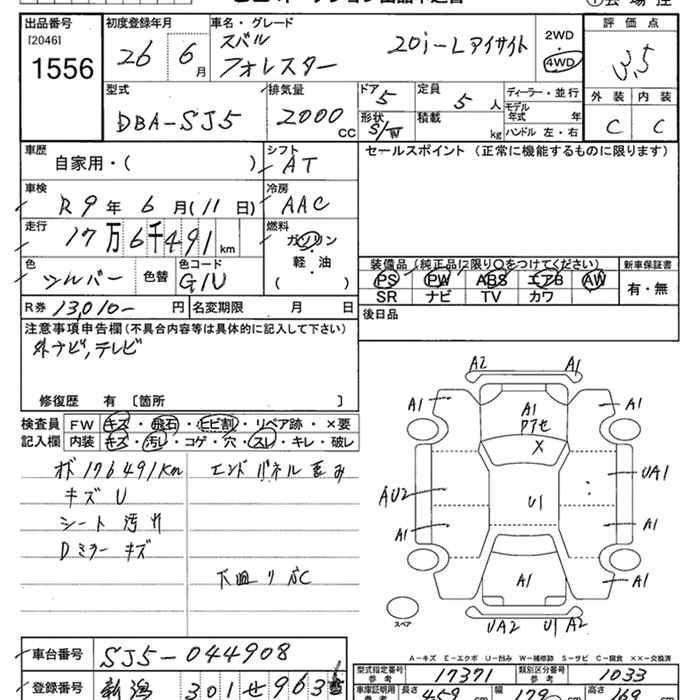 出品番号 初度登録年月 車名・グレード 評価点
[2046] スバル 20i-Lアイサイト 2WD
1556 26 6月 フォレスター 4WD 3.5
型式 排気量 ドア 定員 ディーラー・並行 外装 内装
DBA-SJ5 2000CC 5 5人 モデル年式 年 C C
形状 積載 kg ハンドル 左・右
車歴 シフト セールスポイント (正常に機能するものに限ります)
自家用・( ) AT
車検 冷房
R9年 6月(11日) AAC
走行 燃料
17万6千491km ガソリン
軽・油
( )
色 色替 色コード 装備品 (純正品に限り○をつけてください) 新車保証書
シルバー G1U PS PW ABS エアB AW 有・無
SR ナビ TV カワ
R券 13,010- 円 名変期限 月 日 後日品
注意事項申告欄(不具合内容等は具体的に記入して下さい)
外ナビ,テレビ
修復歴 有 〔箇所 〕
検査員 FW キズ・飛石・ヒビ割・リペア跡・×要
記入欄 内装 キズ・汚レ・コゲ・穴・スレ・キレ・破レ
オド176491km エンドパネル歪み
キズ U
シート 汚れ
Dミラー キズ
A2 A1
A1 A1 A1
アセ
X
AU2 U1 UA1
A1 A1
A1 A1 A1
スペア UA2 U1 A2
A-キズ E-エクボ U-凹み W-補修跡 S-サビ C-腐食 ××-交換済
車台番号 SJ5-044908
型式指定番号 参考 17371 類別区分番号 参考 1033
登録番号 新潟 301 せ 963
車庫証明用 参考 長さ 459 cm 幅 179 cm 高さ 169